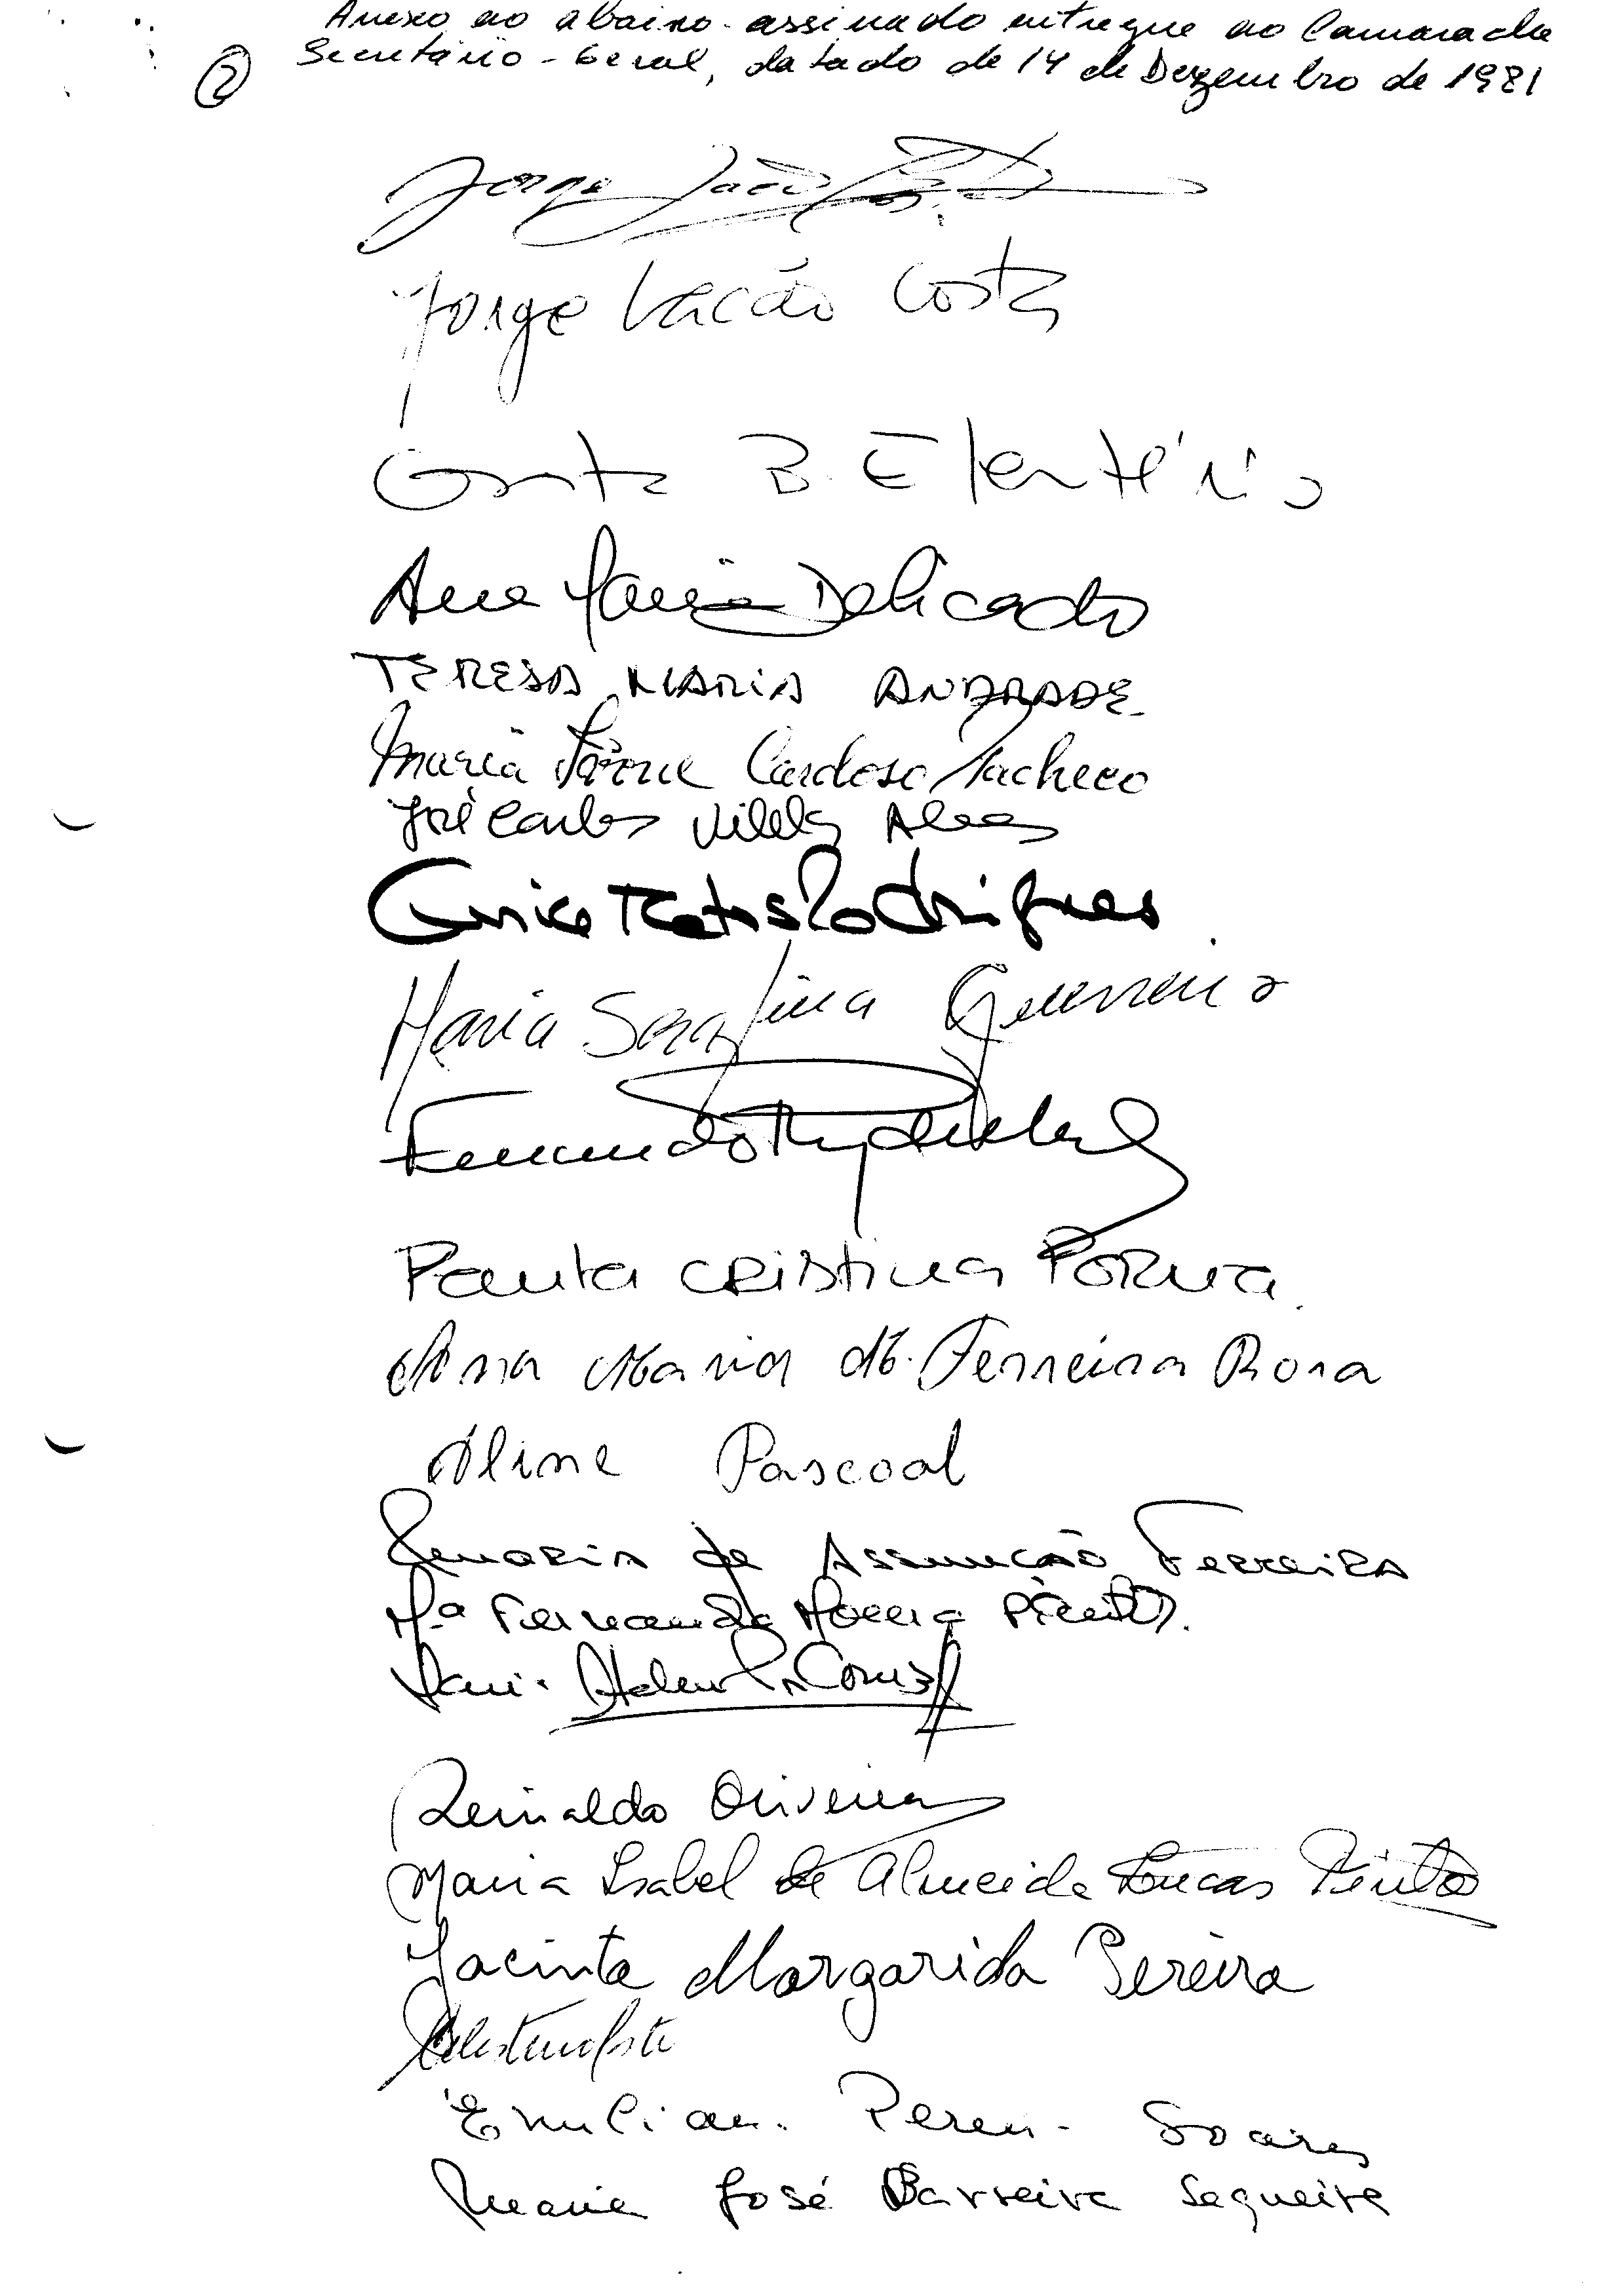 Anexo ao abaixo-assinado entregue ao Camarada
2 Secretário-Geral, datado de 14 de Dezembro de 1981
Jorge João
Jorge Lacão Costa
Costa B. Eleutério
Ana Maria Delicado
TERESA MARIA ANDRADE
Maria Cardoso Pacheco
José Carlos Vilela Alves
Rodrigues
Maria Serafina Guerreiro
Fernando
Paula CRistina FoRma
Ana Maria M. Ferreira Rosa
Aline Pascoal
de Assunção Ferreira
Mª Fernanda Pinto
Reinaldo Oliveira
Maria Isabel de Almeida Lucas Pinto
Jacinta Margarida Pereira
Soares
Maria José Barreira Sequeira